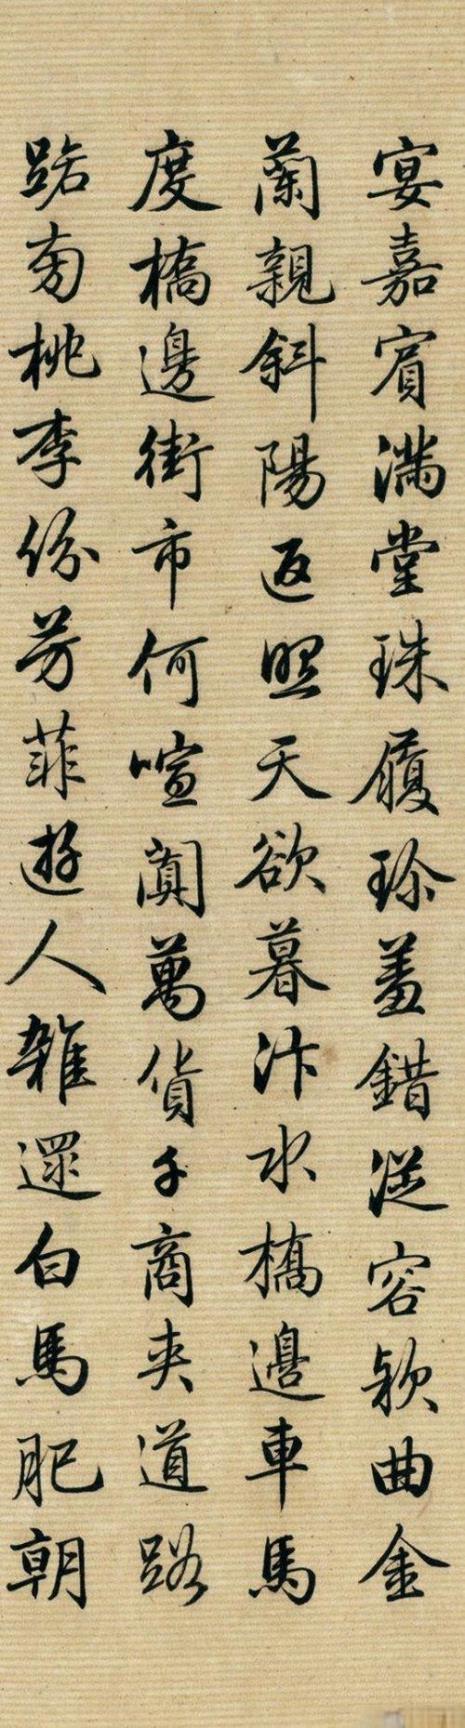 宴嘉賓滿堂珠履珍羞錯從容款曲金
蘭親斜陽返照天欲暮汴水橋邊車馬
度橋邊街市何喧闐萬貨千商夾道路
路旁桃李份芳菲遊人雜還白馬肥朝